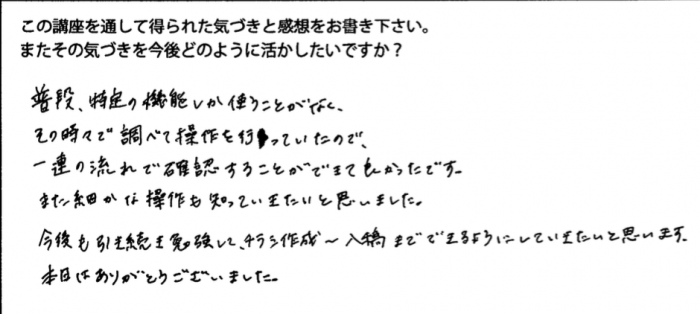 この講座を通して得られた気づきと感想をお書き下さい。
またその気づきを今後どのように活かしたいですか？
普段、特定の機能しか使うことがなく、
その時々で調べて操作を行っていたので、
一連の流れで確認することができて良かったです。
また細かな操作も知っていきたいと思いました。
今後も引き続き勉強して、チラシ作成～入稿までできるようにしていきたいと思います。
本日はありがとうございました。